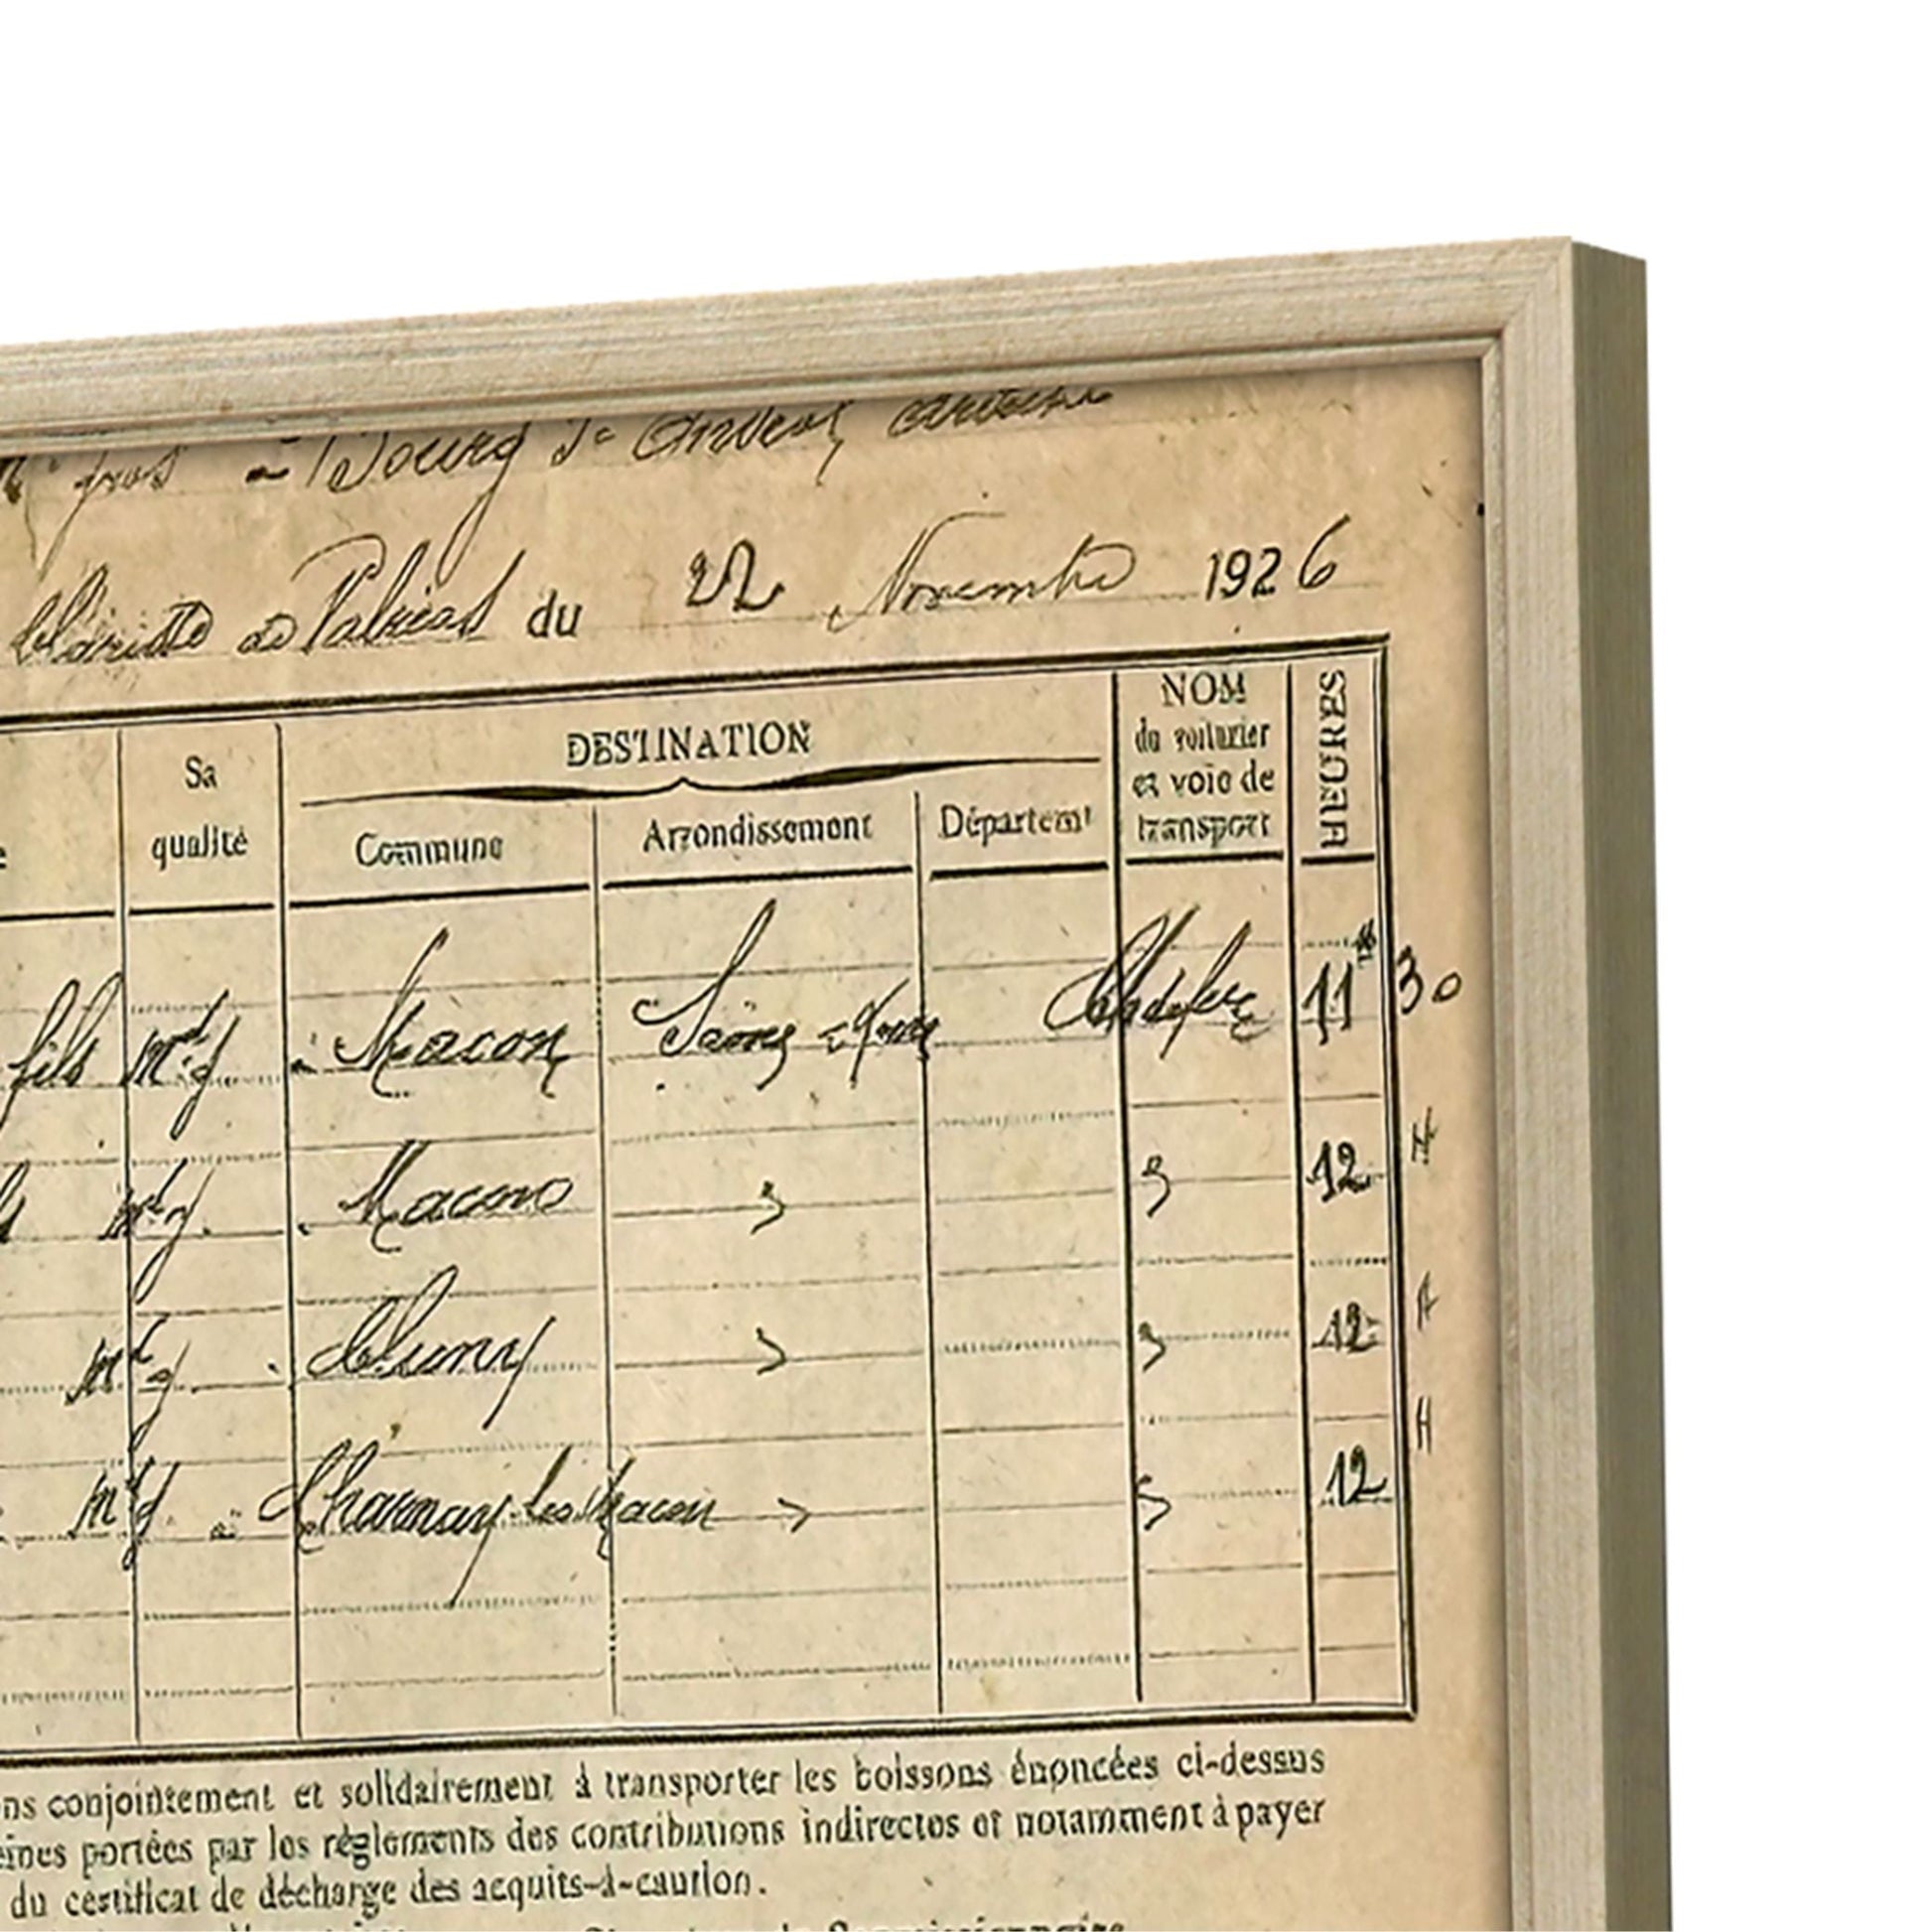 Bourg St
du 22 Novembre 1926
Sa qualité
DESTINATION
Commune Arrondissement Départemt
NOM du voiturier et voie de transport
HEURES
fils Md g à Macon Saône 11 H 30
Md g Macon 12 H
Md g Cluny 12 H
Md g à Charnay-les-Macon 12 H
conjointement et solidairement à transporter les boissons énoncées ci-dessus
portées par les règlements des contributions indirectes et notamment à payer
du certificat de décharge des acquits-à-caution.